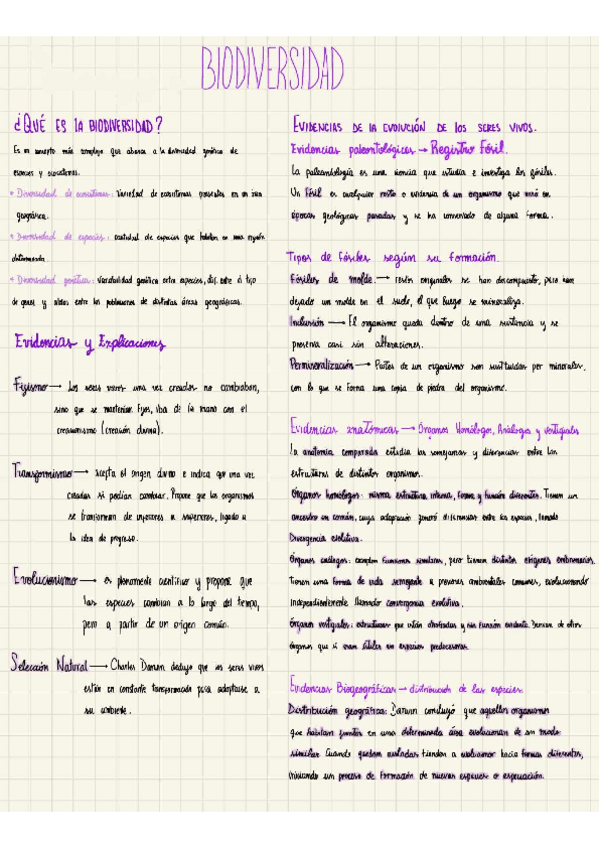 BIODIVERSIDAD
¿QUÉ ES LA BIODIVERSIDAD?
Es un concepto más complejo que abarca a la diversidad genética de
especies y ecosistemas.
• Diversidad de ecosistemas: Variedad de ecosistemas presentes en un área
geográfica.
• Diversidad de especies: cantidad de especies que habitan en una región
determinada
• Diversidad genética: variabilidad genética entre especies, dif. entre el tipo
de genes y alelos entre las poblaciones de distintas áreas geográficas.
Evidencias y Explicaciones
Fijismo → Los seres vivos una vez creados no cambiaban,
sino que se mantenían fijos, iba de la mano con el
creacionismo (creación divina).
Transformismo → acepta el origen divino e indica que una vez
creadas sí podían cambiar. Propone que los organismos
se transforman de inferiores a superiores, ligado a
la idea de progreso.
Evolucionismo → es plenamente científico y propone que
las especies cambian a lo largo del tiempo,
pero a partir de un origen común.
Selección Natural → Charles Darwin dedujo que los seres vivos
están en constante transformación para adaptarse a
su ambiente.
EVIDENCIAS DE LA EVOLUCIÓN DE LOS SERES VIVOS.
Evidencias paleontológicas → Registro Fósil.
La paleontología es una ciencia que estudia e investiga los fósiles.
Un fósil es cualquier resto o evidencia de un organismo que vivió en
épocas geológicas pasadas y se ha conservado de alguna forma.
Tipos de fósiles según su formación.
Fósiles de molde. → restos originales se han descompuesto, pero han
dejado un molde en el suelo, el que luego se mineraliza.
Inclusión → El organismo queda dentro de una sustancia y se
preserva casi sin alteraciones.
Permineralización → Partes de un organismo son sustituidas por minerales,
con lo que se forma una copia de piedra del organismo.
Evidencias anatómicas → Órganos Homólogos, Análogos y vestigiales
La anatomía comparada estudia las semejanzas y diferencias entre las
estructuras de distintos organismos.
Órganos homólogos: misma estructura interna, forma y función diferentes. Tienen un
ancestro en común, cuya adaptación generó diferencias entre las especies, llamado
Divergencia evolutiva.
Órganos análogos: cumplen funciones similares, pero tienen distintos orígenes embrionarios.
Tienen una forma de vida semejante a presiones ambientales comunes, evolucionando
independientemente llamado convergencia evolutiva.
Órganos vestigiales: estructuras que están atrofiadas y sin función evidente. Derivan de otros
órganos que sí eran útiles en especies predecesoras.
Evidencias Biogeográficas → distribución de las especies.
Distribución geográfica: Darwin concluyó que aquellos organismos
que habitan juntos en una determinada área evolucionan de un modo
similar. Cuando quedan aisladas tienden a evolucionar hacia formas diferentes,
iniciando un proceso de formación de nuevas especies o especiación.